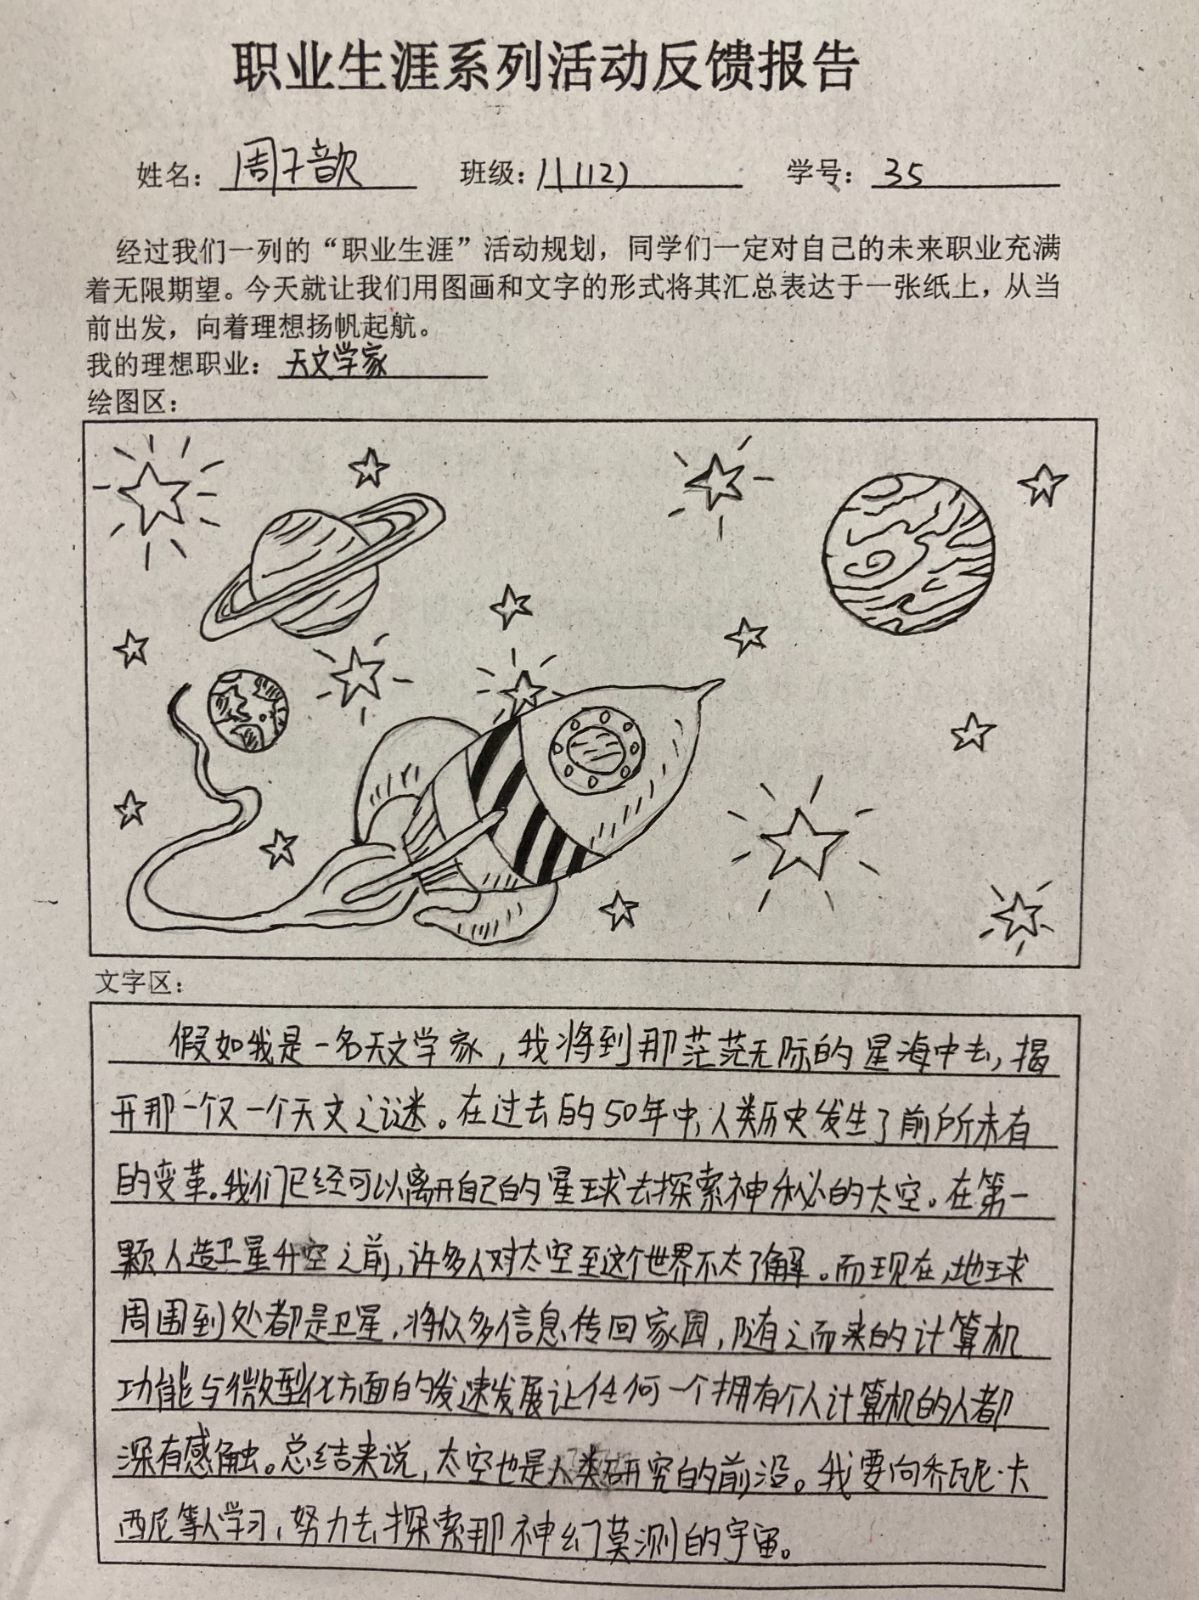 职业生涯系列活动反馈报告
姓名：周子歆 班级：11(12) 学号：35
经过我们一列的“职业生涯”活动规划，同学们一定对自己的未来职业充满
着无限期望。今天就让我们用图画和文字的形式将其汇总表达于一张纸上，从当
前出发，向着理想扬帆起航。
我的理想职业：天文学家
绘图区：
文字区：
假如我是一名天文学家，我将到那茫茫无际的星海中去，揭
开那一个又一个天文之谜。在过去的50年中，人类历史发生了前所未有
的变革。我们已经可以离开自己的星球去探索神秘的太空。在第一
颗人造卫星升空之前，许多人对太空至这个世界不太了解。而现在，地球
周围到处都是卫星，将众多信息传回家园，随之而来的计算机
功能与微型化方面的发速发展让任何一个拥有个人计算机的人都
深有感触。总结来说，太空也是人类研究的前沿。我要向乔瓦尼·卡
西尼等人学习，努力去探索那神幻莫测的宇宙。